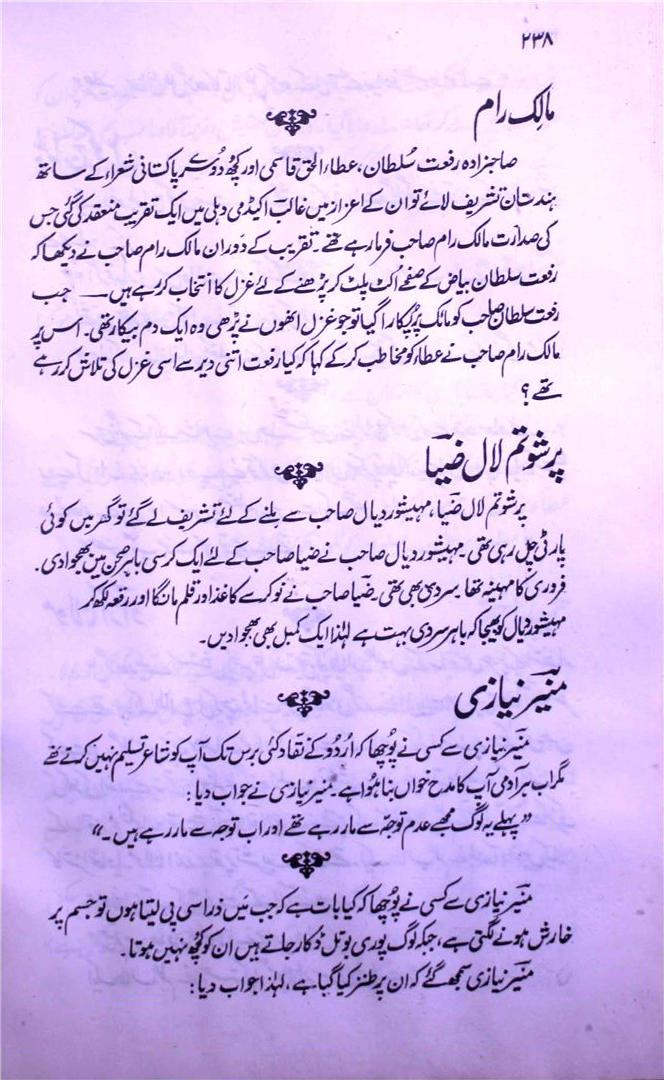 ۲۳۸
مالک رام
صاحبزادہ رفعت سُلطان، عطاء الحق قاسمی اور کچھ دُوسرے پاکستانی شعراء کے ساتھ
ہندستان تشریف لائے تو ان کے اعزاز میں غالبؔ اکیڈمی دہلی میں ایک تقریب منعقد کی گئی جس
کی صدارت مالک رام صاحب فرما رہے تھے۔ تقریب کے دَوران مالک رام صاحب نے دیکھا کہ
رفعت سلطان بیاض کے صفحے اُلٹ پلٹ کر پڑھنے کے لئے غزل کا انتخاب کر رہے ہیں ــــ جب
رفعت سلطان صاحب کو مائک پر پُکارا گیا تو جو غزل انھوں نے پڑھی وہ ایک دم بیکار تھی۔ اس پر
مالک رام صاحب نے عطاء کو مخاطب کر کے کہا کہ کیا رفعت اتنی دیر سے اسی غزل کی تلاش کر رہے
تھے؟
پرشوتم لال ضیاؔ
پرشوتم لال ضیاؔ، مہیشور دیال صاحب سے ملنے کے لئے تشریف لے گئے تو گھر میں کوئی
پارٹی چل رہی تھی۔ مہیشور دیال صاحب نے ضیا صاحب کے لئے ایک کرسی باہر صحن میں بھجوا دی۔
فروری کا مہینہ تھا۔ سردی بھی تھی۔ ضیاؔ صاحب نے نوکر سے کاغذ اور قلم مانگا اور رقعہ لکھ کر
مہیشور دیال کو بھیجا کہ باہر سردی بہت ہے لہٰذا ایک کمبل بھی بھجوا دیں۔
منیرؔ نیازی
منیرؔ نیازی سے کسی نے پُوچھا کہ اُردُو کے نقاد کئی برس تک آپ کو شاعر تسلیم نہیں کرتے تھے
مگر اب ہر آدمی آپ کا مدح خواں بنا ہُوا ہے۔ منیر نیازی نے جواب دیا:
”پہلے یہ لوگ مجھے عدم توجّہ سے مار رہے تھے اور اب توجہ سے مار رہے ہیں۔“
منیرؔ نیازی سے کسی نے پُوچھا کہ کیا بات ہے کہ جب مَیں ذرا سی پی لیتا ہوں تو جسم پر
خارش ہونے لگتی ہے، جبکہ لوگ پوری بوتل ڈکار جاتے ہیں ان کو کچھ نہیں ہوتا۔
منیرؔ نیازی سمجھ گئے کہ ان پر طنز کیا گیا ہے، لہٰذا جواب دیا: